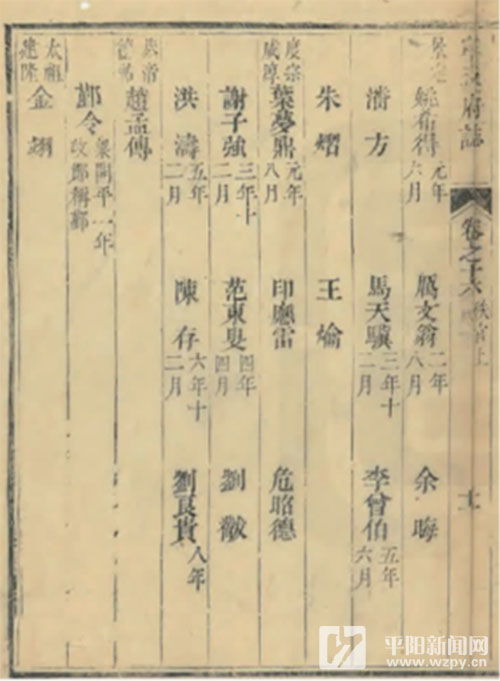 府誌 卷之十六 秩官上
姚希得 元年六月 厲文翁 二年八月 余晦
潘方 馬天驥 三年十二月 李曾伯 五年六月
朱熠 王爚
度宗咸淳 葉夢鼎 元年八月 印應雷 危昭德
謝子強 三年十二月 范東叟 四年四月 劉黻
洪濤 五年二月 陳存 六年十二月 劉良貴 八年
趙孟傳
鄞令 梁開平一年改鄮稱鄞
太祖建隆 金翊
平阳新闻网
www.wzpy.cn